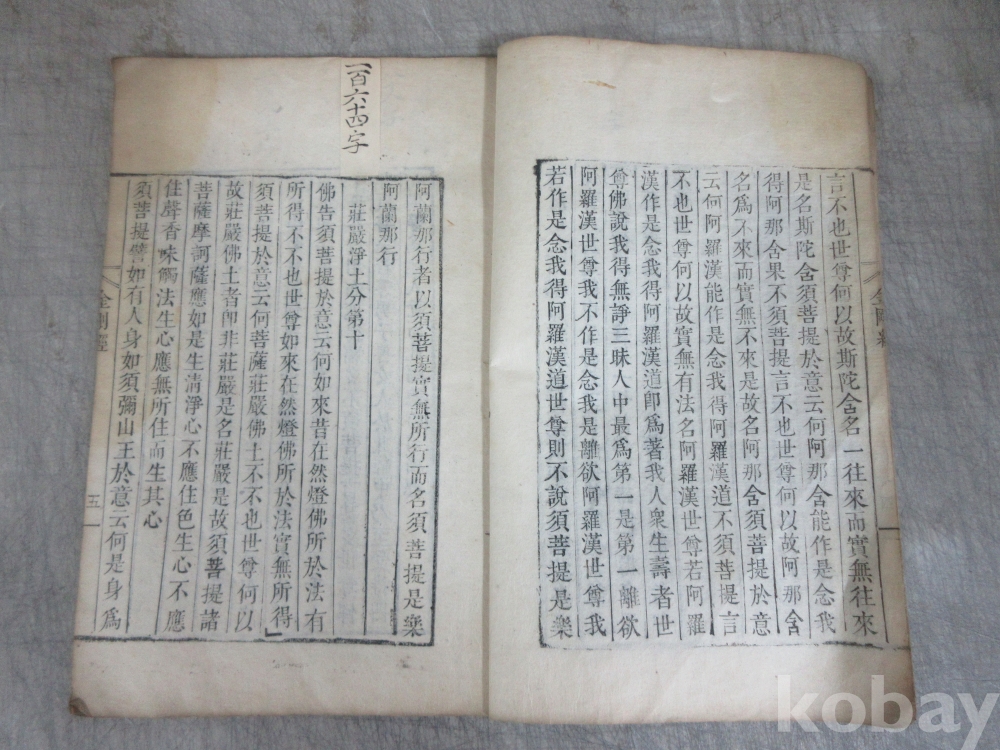 言不也世尊何以故斯陀含名一往來而實無往來
是名斯陀含須菩提於意云何阿那含能作是念我
得阿那含果不須菩提言不也世尊何以故阿那含
名爲不來而實無不來是故名阿那含須菩提於意
云何阿羅漢能作是念我得阿羅漢道不須菩提言
不也世尊何以故實無有法名阿羅漢世尊若阿羅
漢作是念我得阿羅漢道卽爲著我人衆生壽者世
尊佛說我得無諍三昧人中最爲第一是第一離欲
阿羅漢世尊我不作是念我是離欲阿羅漢世尊我
若作是念我得阿羅漢道世尊則不說須菩提是樂
一百六十四字
阿蘭那行者以須菩提實無所行而名須菩提是樂
阿蘭那行
莊嚴淨土分第十
佛告須菩提於意云何如來昔在然燈佛所於法有
所得不不也世尊如來在然燈佛所於法實無所得
須菩提於意云何菩薩莊嚴佛土不不也世尊何以
故莊嚴佛土者卽非莊嚴是名莊嚴是故須菩提諸
菩薩摩訶薩應如是生淸淨心不應住色生心不應
住聲香味觸法生心應無所住而生其心
須菩提譬如有人身如須彌山王於意云何是身爲
金剛經
五
kobay